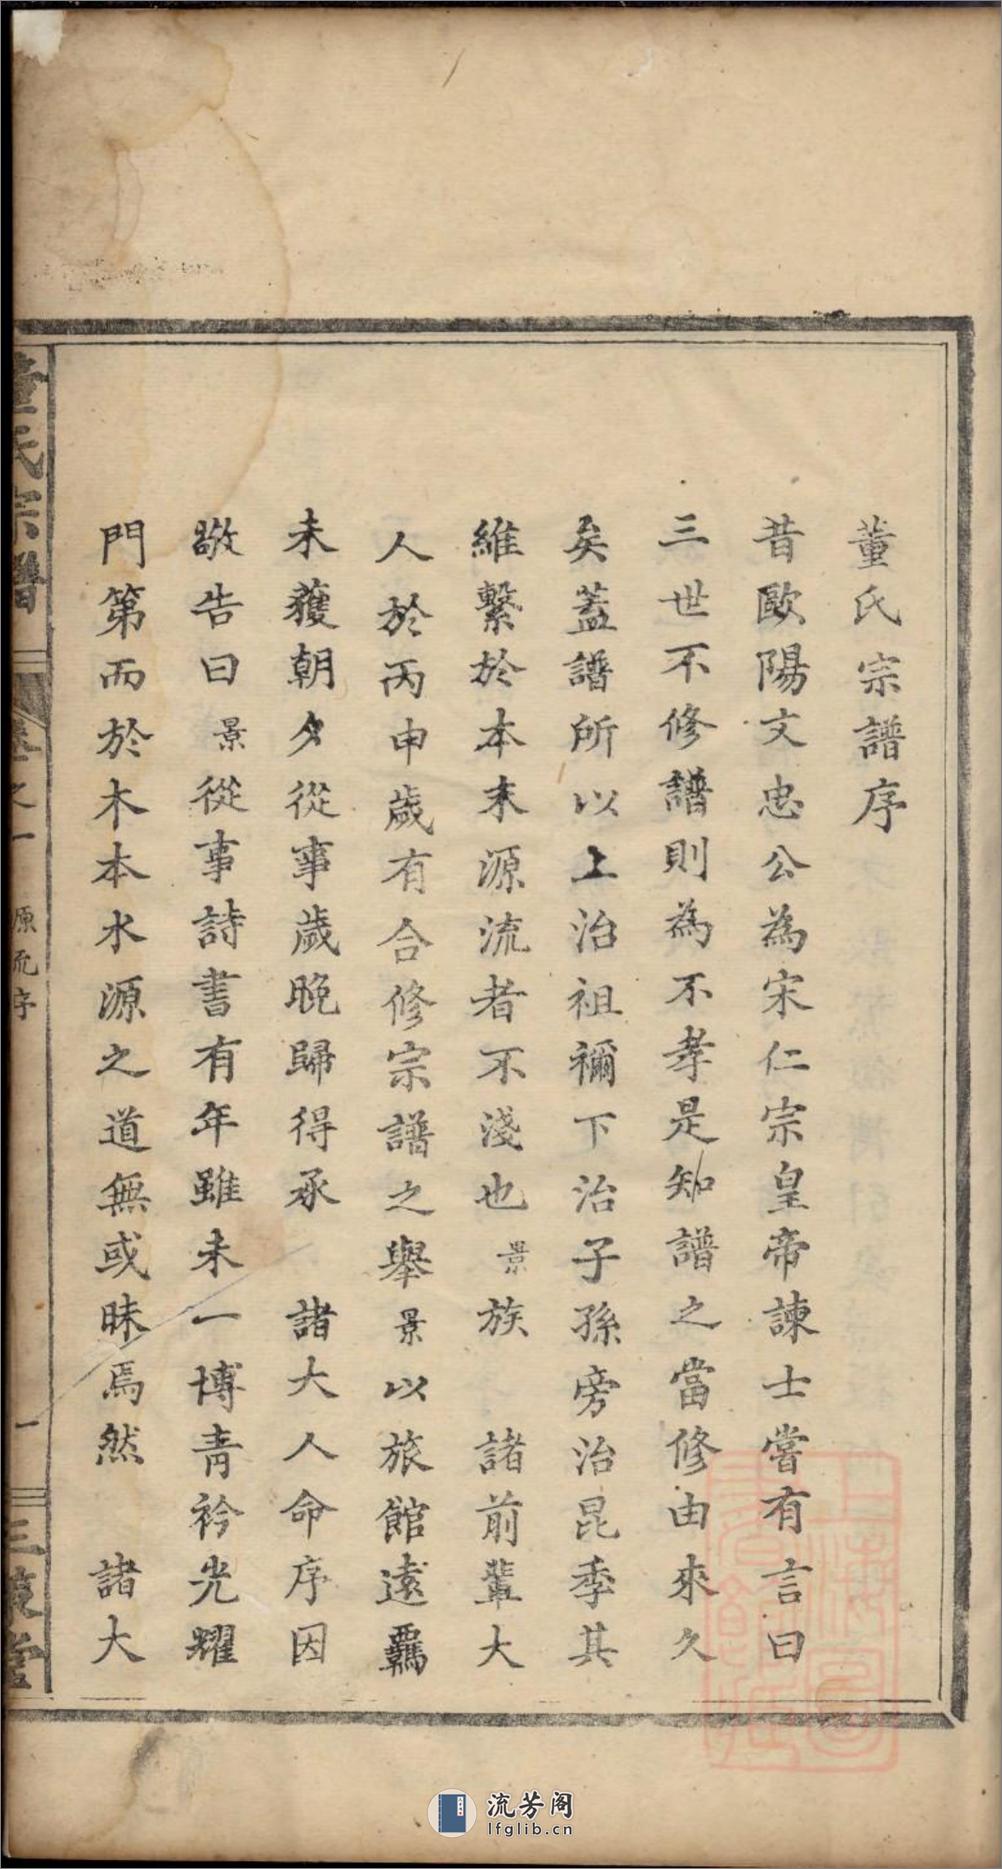 董氏宗譜序
昔歐陽文忠公為宋仁宗皇帝諫士嘗有言曰
三世不修譜則為不孝是知譜之當修由來久
矣蓋譜所以上治祖禰下治子孫旁治昆季其
維繫於本末源流者不淺也景族 諸前輩大
人於丙申歲有合修宗譜之舉景以旅館遠羈
未獲朝夕從事歲晚歸得承 諸大人命序因
敬告曰景從事詩書有年雖未一博青衿光耀
門第而於木本水源之道無或昧焉然 諸大
董氏宗譜 卷之一 原流序 一 三策堂
流芳阁
lfglib.cn